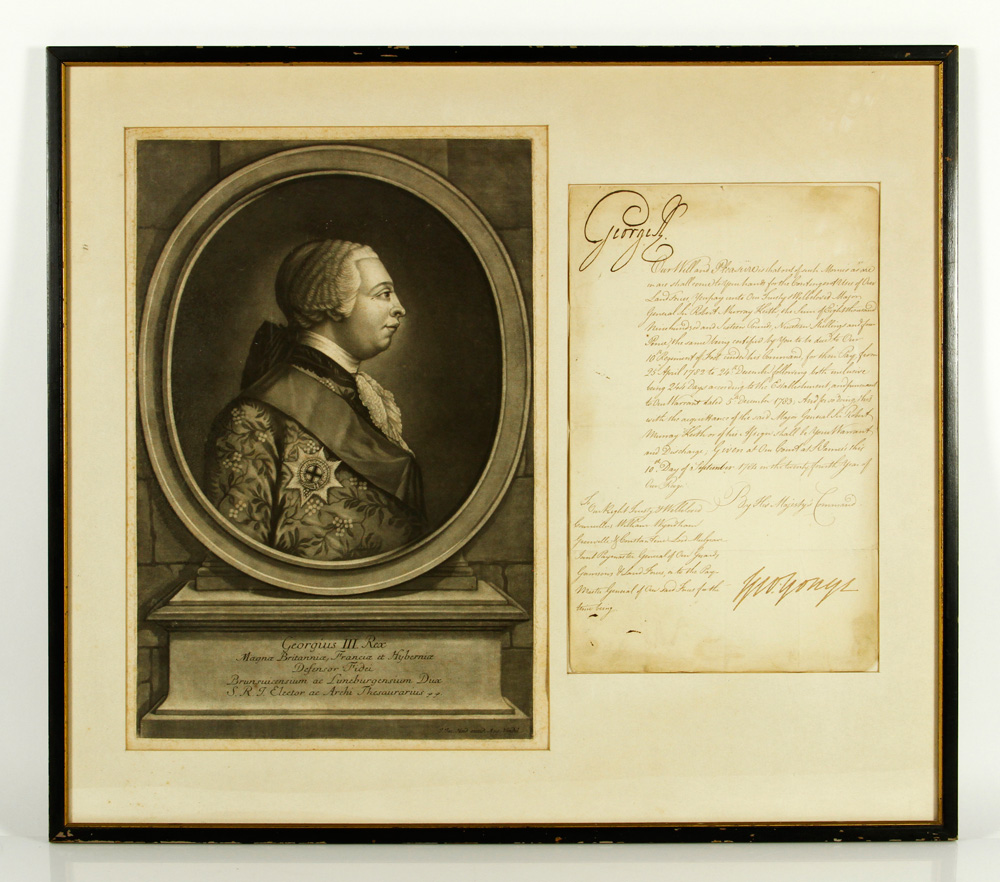 Georgius III Rex
Magnæ Britanniæ, Franciæ et Hyberniæ
Defensor Fidei
Brunsuicensium ac Luneburgensium Dux
S. R. I. Elector ac Archi Thesaurarius
George R.
Our Will and Pleasure is that out of such Monies as are
or as shall come to Your hands for the Contingent Uses of Our
Land Forces You pay unto Our Trusty & Wellbeloved Major
General Sir Robert Murray Keith, the Sum of Eight thousand
Nine hundred and Sixteen Pounds, Nineteen Shillings and four
Pence, the same being certified by You to be due to Our
10th Regiment of Foot under his Command, for their Pay from
25th April 1782 to 24th December following both inclusive
being 244 days according to the Establishment and pursuant
to Our Warrant dated 5th December 1783. And for so doing this
with the acquittance of the said Major General Sir Robert
Murray Keith or of his Assigns shall be Your Warrant
and Discharge. Given at Our Court at St. James's this
10th Day of September 1784 in the twenty fourth Year of
Our Reign
By His Majesty's Command
To Our Right Trusty & Wellbeloved
Councillor William Wyndham
Grenville & Constantine Lord Mulgrave
Joint Paymaster General of Our Guards
Garrisons & Land Forces, or to the Pay
Master General of Our said Forces for the
time being
Geo. Yonge